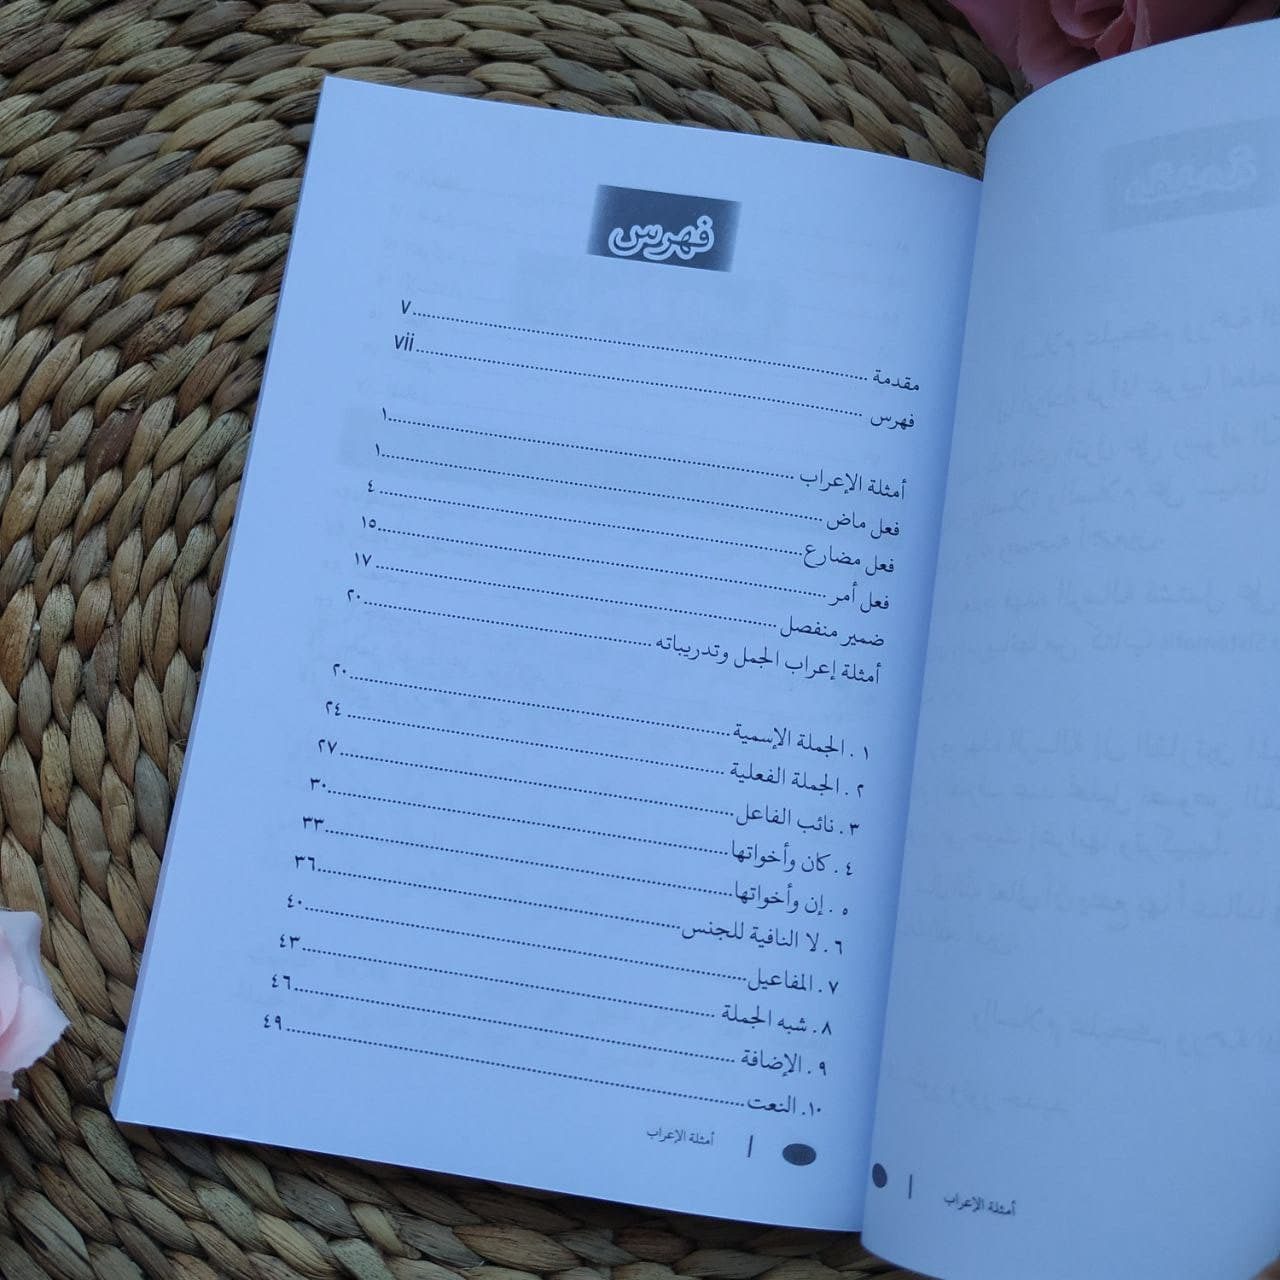 فهرس
مقدمة ........ ٧
فهرس ........ vii
أمثلة الإعراب ........ ١
فعل ماض ........ ١
فعل مضارع ........ ٤
فعل أمر ........ ١٥
ضمير منفصل ........ ١٧
أمثلة إعراب الجمل وتدريباته ........ ٢٠
١ . الجملة الإسمية ........ ٢٠
٢ . الجملة الفعلية ........ ٢٤
٣ . نائب الفاعل ........ ٢٧
٤ . كان وأخواتها ........ ٣٠
٥ . إن وأخواتها ........ ٣٣
٦ . لا النافية للجنس ........ ٣٦
٧ . المفاعيل ........ ٤٠
٨ . شبه الجملة ........ ٤٣
٩ . الإضافة ........ ٤٦
١٠. النعت ........ ٤٩
| أمثلة الإعراب
أمثلة الإعراب |